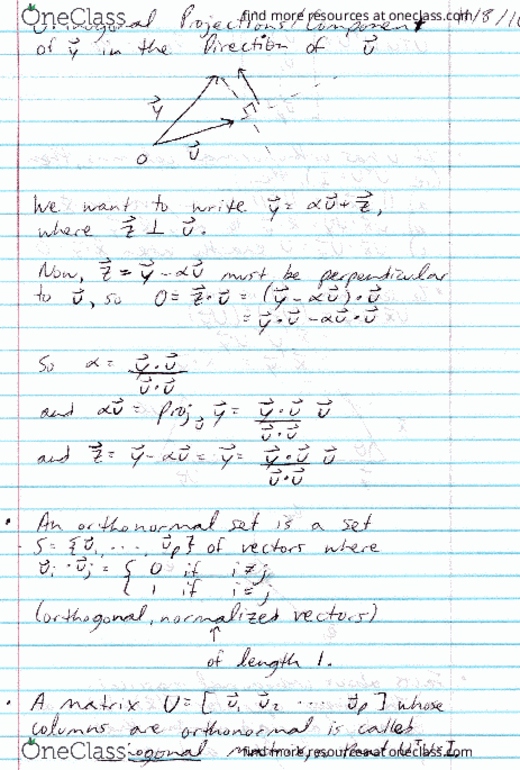 OneClass
find more resources at oneclass.com
Orthogonal Projections/Component
of y⃗ in the Direction of u⃗
y⃗
O
u⃗
We want to write y⃗ = αu⃗ + z⃗,
where z⃗ ⊥ u⃗.
Now, z⃗ = y⃗ - αu⃗ must be perpendicular
to u⃗, so 0 = z⃗ · u⃗ = (y⃗ - αu⃗) · u⃗
= y⃗ · u⃗ - αu⃗ · u⃗
So α = y⃗ · u⃗ / u⃗ · u⃗
and αu⃗ = proj_u⃗ y⃗ = y⃗ · u⃗ / u⃗ · u⃗ u⃗
and z⃗ = y⃗ - αu⃗ = y⃗ = y⃗ · u⃗ / u⃗ · u⃗ u⃗
• An orthonormal set is a set
S = {u⃗₁, ..., u⃗ₚ} of vectors where
u⃗ᵢ · u⃗ⱼ = { 0 if i ≠ j
{ 1 if i = j
(orthogonal, normalized vectors)
↑
of length 1.
• A matrix U = [ u⃗₁ u⃗₂ ... u⃗ₚ ] whose
columns are orthonormal is called
OneClass
find more resources at oneclass.com